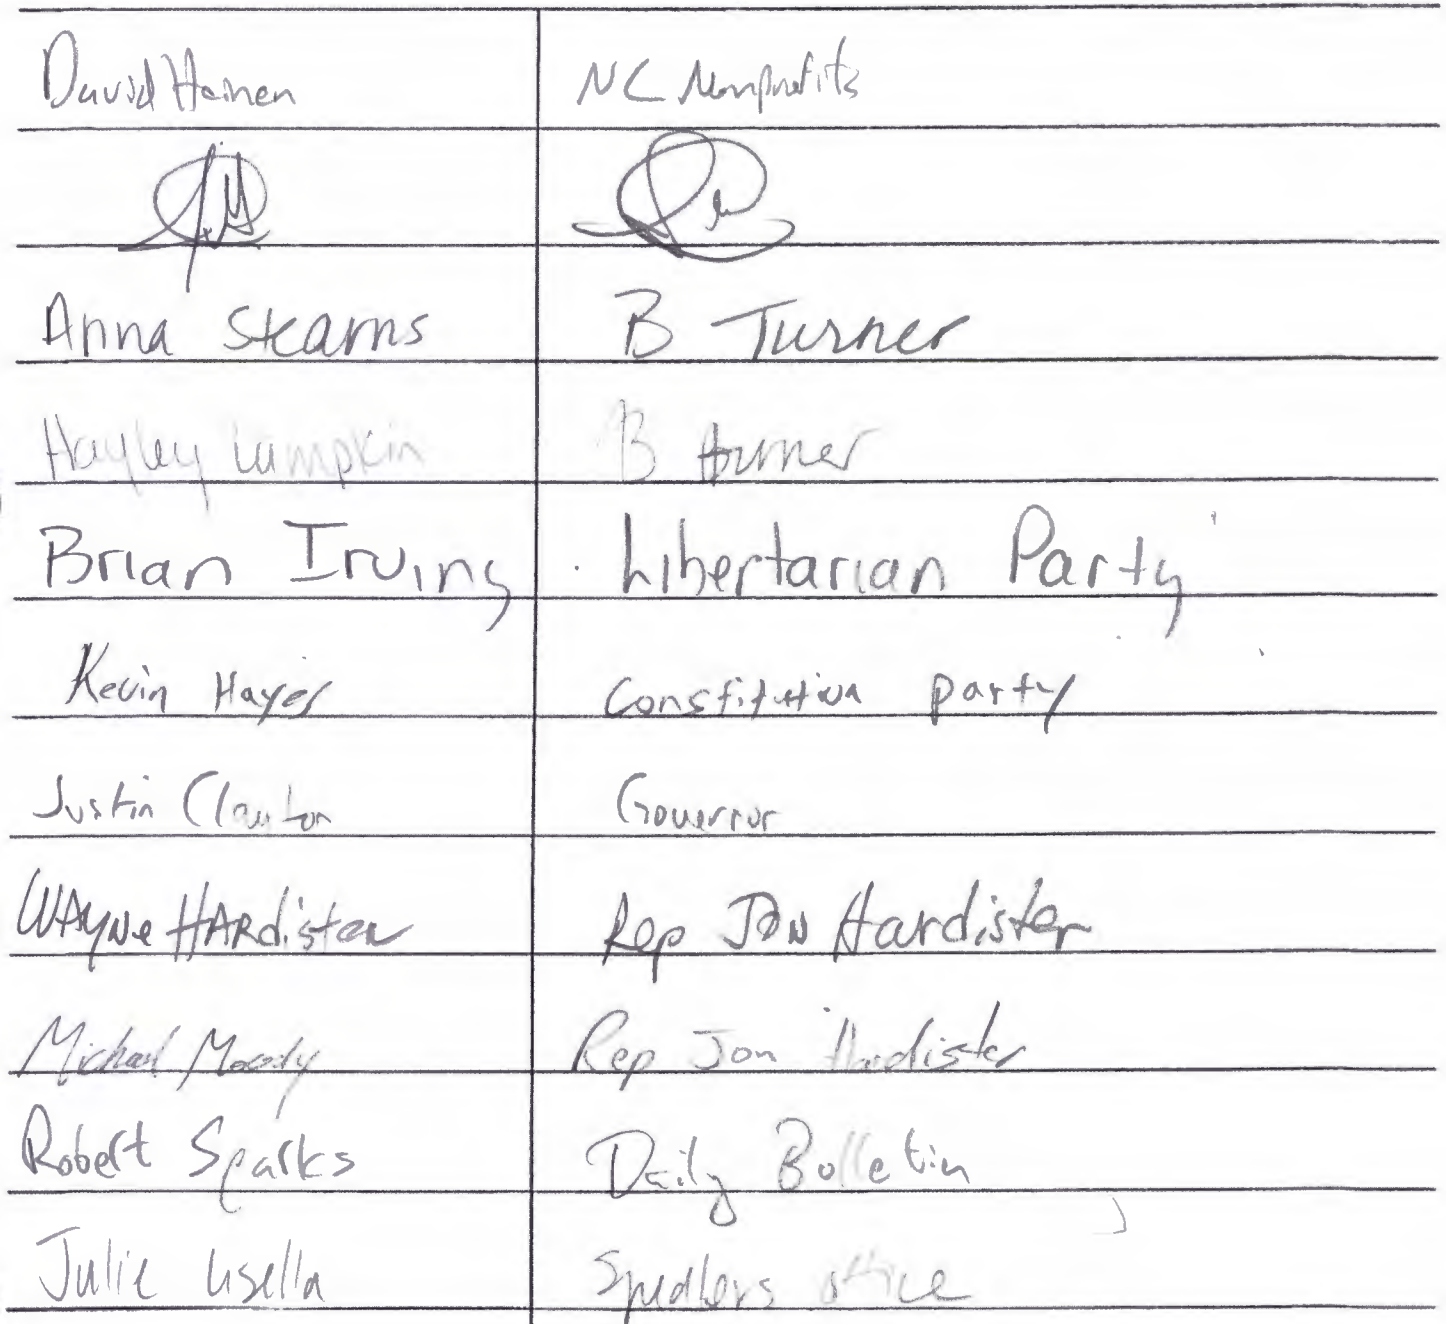 David Heinen NC Nonprofits
Anna Stearns B Turner
Hayley Lumpkin B turner
Brian Irving Libertarian Party
Kevin Hayes Constitution party
Justin Clayton Governor
WAYNe HARdister Rep JON Hardister
Michael Moody Rep Jon Hardister
Robert Sparks Daily Bulletin
Julie Lisella Speakers office